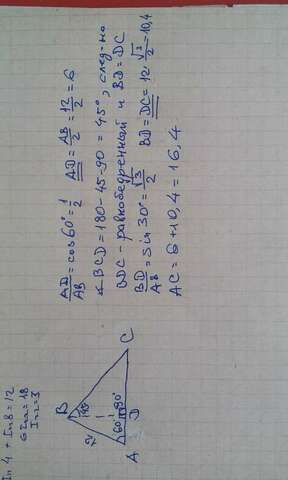 In 4 + In 8 = 12
6 Ina = 18
Ina = 3
B
45°
12
60°
90°
A
D
C
AD/AB = cos60° = 1/2   AD = AB/2 = 12/2 = 6
∢ BCD = 180 - 45 - 90 = 45°, след-но
BDC - равнобедренный и BD = DC
BD/AB = Sin 30° = √3/2   BD = DC = 12 · √3/2 = 10,4
AC = 6 + 10,4 = 16,4